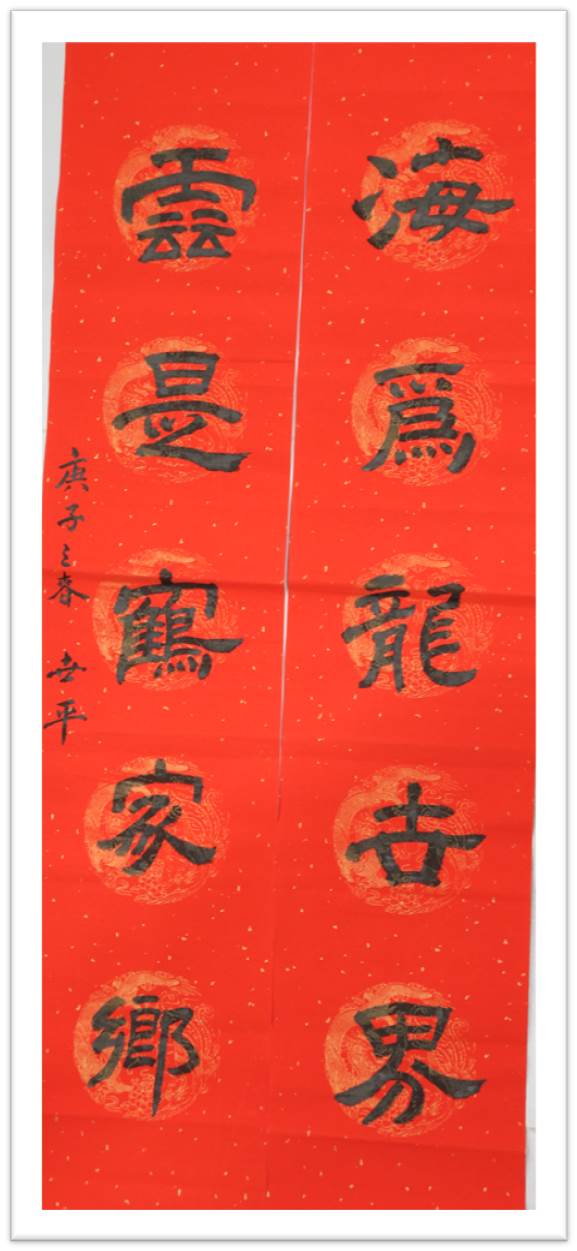 海為龍世界
雲是鶴家鄉
庚子之春 世平